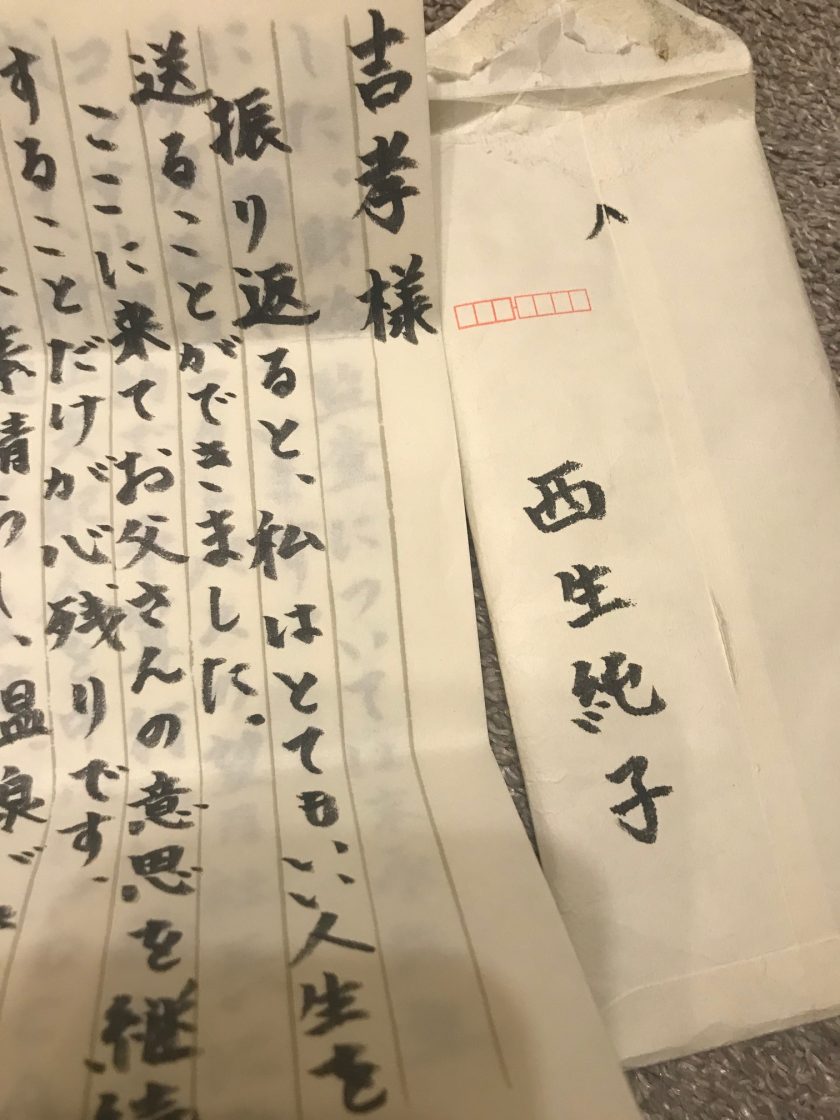 吉孝様
振り返ると、私はとてもいい人生を
送ることができました。
ここに来てお父さんの意思を継続
することだけが心残りです。
温泉
西生純子